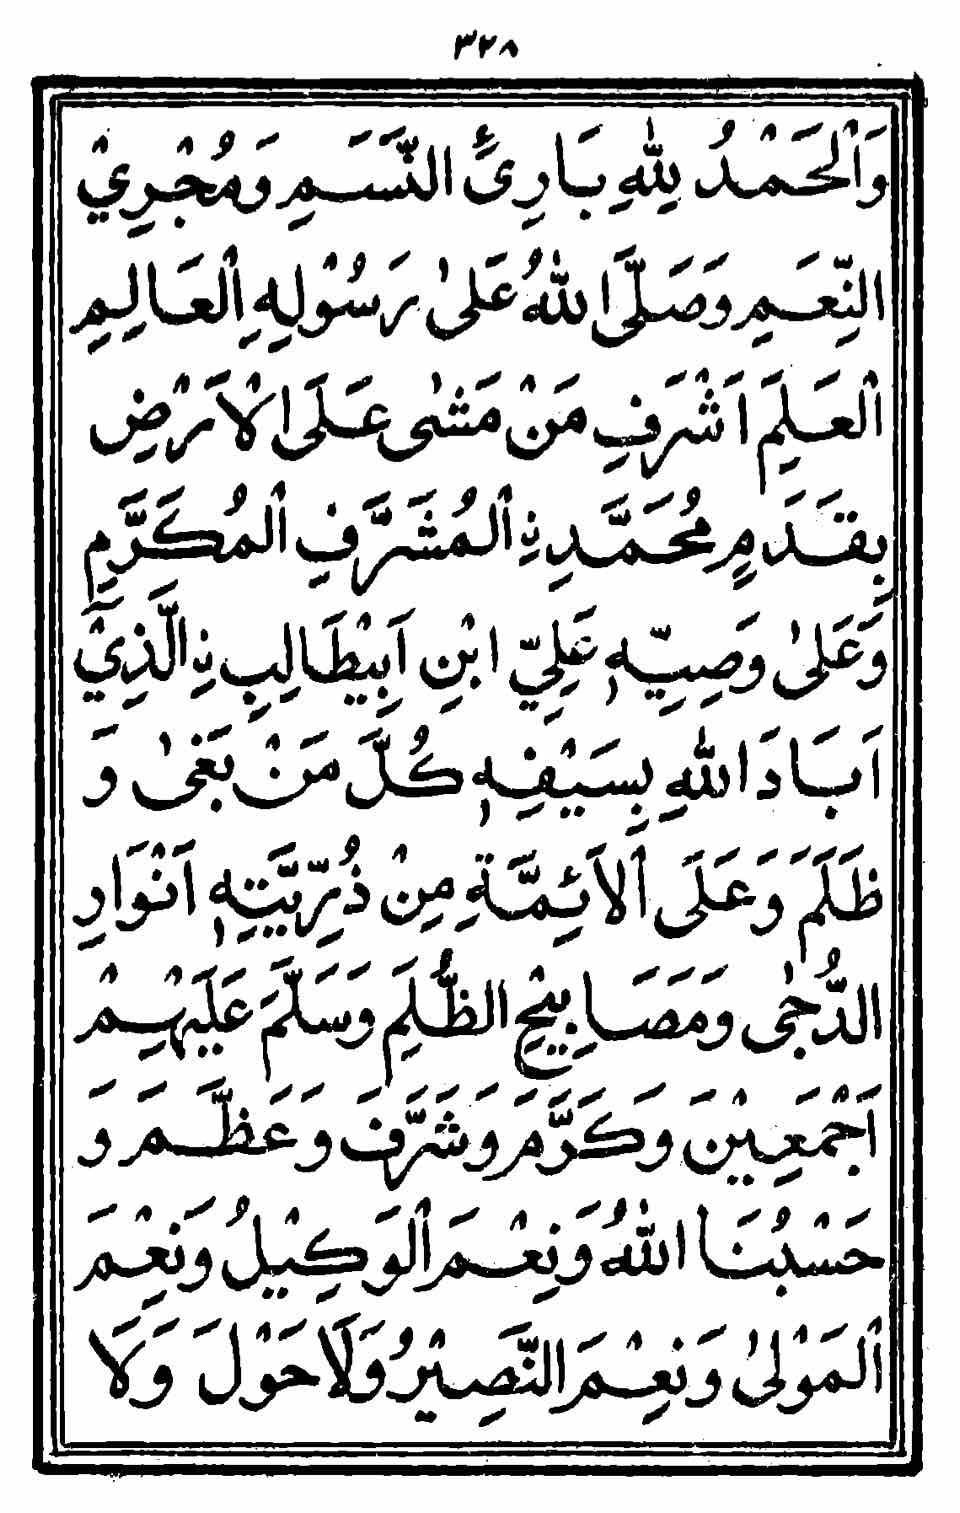 ٣٢٨
وَالْحَمْدُ لِلّٰهِ بَارِئِ النَّسَمِ وَمُجْرِيْ
النِّعَمِ وَصَلَّى اللّٰهُ عَلىٰ رَسُوْلِهِ الْعَالِمِ
الْعَلَمِ اَشْرَفِ مَنْ مَشٰى عَلَى الْاَرْضِ
بِقَدَمٍ مُحَمَّدِ ِۨالْمُشَرَّفِ الْمُكَرَّمِ
وَعَلىٰ وَصِيِّهٖ عَلِيِّ ابْنِ اَبِيْطَالِبِ ِۨالَّذِيْ
اَبَادَ اللّٰهِ بِسَيْفِهٖ كُلَّ مَنْ بَغىٰ وَ
ظَلَمَ وَعَلَى الْاَئِمَّةِ مِنْ ذُرِّيَّتِهٖ اَنْوَارِ
الدُّجٰى وَمَصَابِيْحِ الظُّلَمِ وَسَلَّمَ عَلَيْهِمْ
اَجْمَعِيْنَ وَكَرَّمَ وَشَرَّفَ وَعَظَّمَ وَ
حَسْبُنَا اللّٰهُ وَنِعْمَ الْوَكِيْلُ وَنِعْمَ
الْمَوْلىٰ وَنِعْمَ النَّصِيْرُ وَلَاحَوْلَ وَلَا